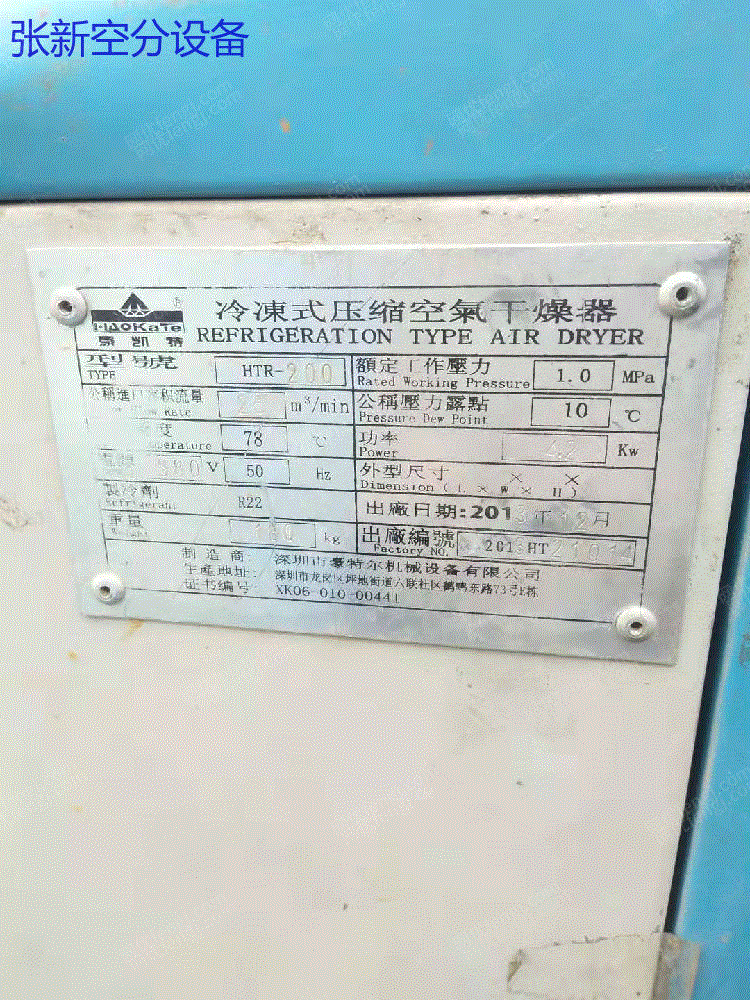 张新空分设备
HAOKaTe ®
豪凯特
冷凍式压缩空氣干燥器
REFRIGERATION TYPE AIR DRYER
型號 HTR-200
TYPE
額定工作壓力 1.0 MPa
Rated Working Pressure
公稱進口容积流量 m³/min
Flow Rate
公稱壓力露點 10 ℃
Pressure Dew Point
度 78 ℃
perature
功率 Kw
Power
380 V 50 Hz
外型尺寸 × ×
Dimension ( L × W × H )
製冷劑 R22
Refrigerant
出廠日期:2013年12月
重量 kg
Weight
出廠編號 2013HT
Factory NO.
制造商: 深圳市豪特尔机械设备有限公司
生産地址: 深圳市龙岗区坪地街道六联社区鹤鸣东路73号E栋
证书编号: XK06-010-00441